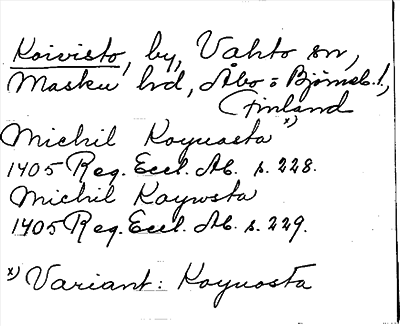 Koivisto, by, Vahto sn,
Masku hd, Åbo = Björneb. l,
Finland
Michil Koyuosta x)
1405 Reg. Eccl. Ab. s. 228.
Michil Koywsta
1405 Reg. Eccl. Ab. s. 229.
x) Variant: Koyuosta